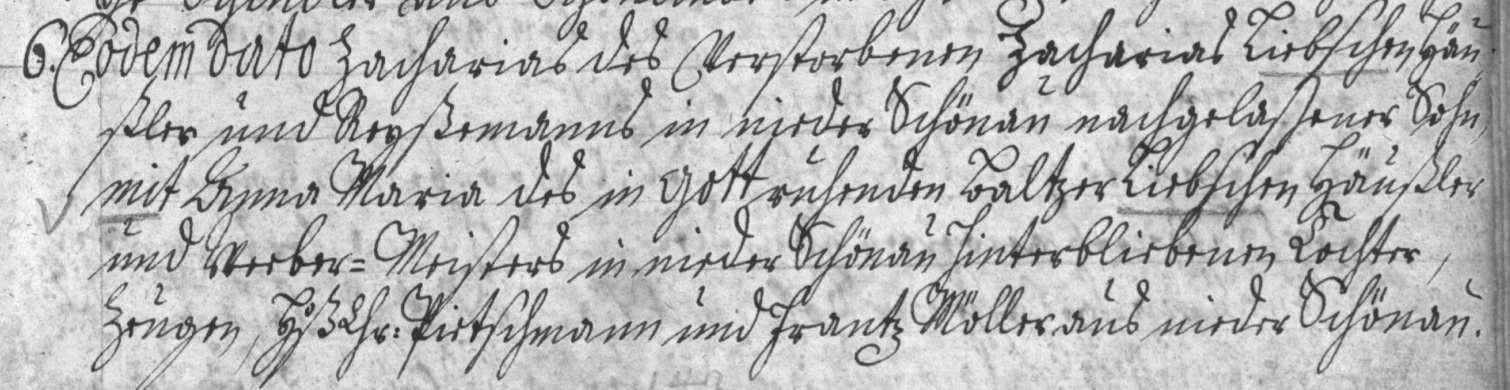 6. Eodem Dato Zacharias des Verstorbenen Zacharias Liebschen Häu
ßler und Reyßemanns in nieder Schönau nachgelaßener Sohn,
mit Anna Maria des in Gott ruhenden Baltzer Liebschen Häußler
und Weber= Meisters in nieder Schönau hinterbliebenen Tochter,
Zeugen, Chr: Pietschmann und Frantz Möller aus nieder Schönau.